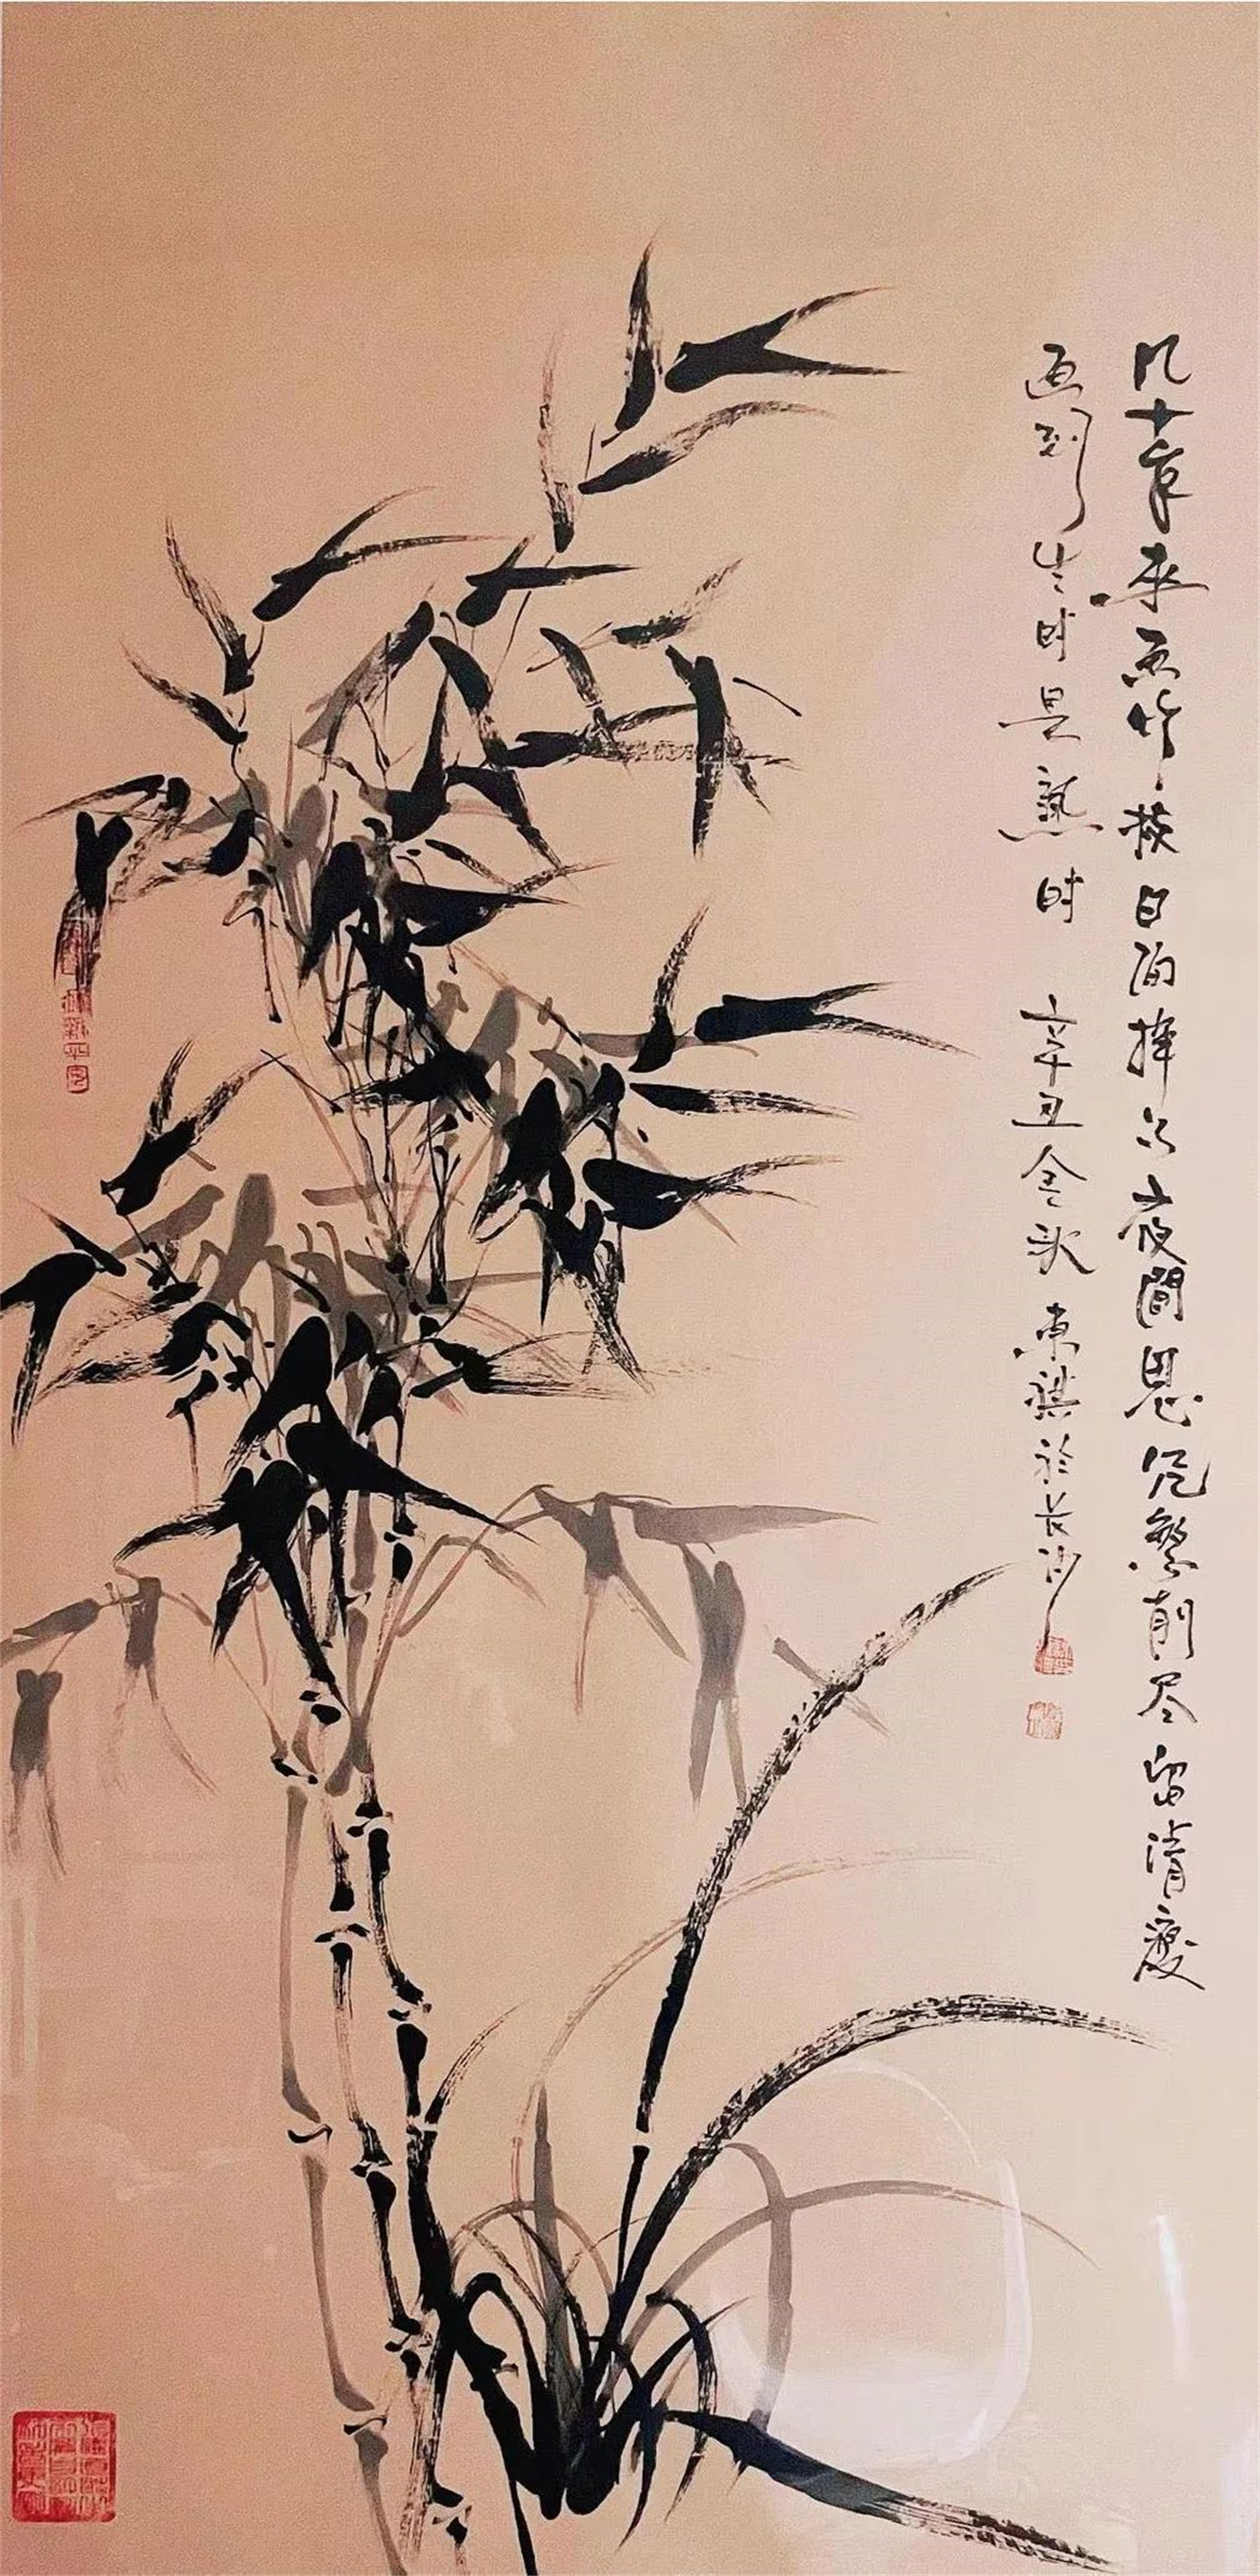 几十年来画竹枝日间挥写夜間思冗繁削尽留清瘦
画到生时是熟时 辛丑金秋 東祺於长沙